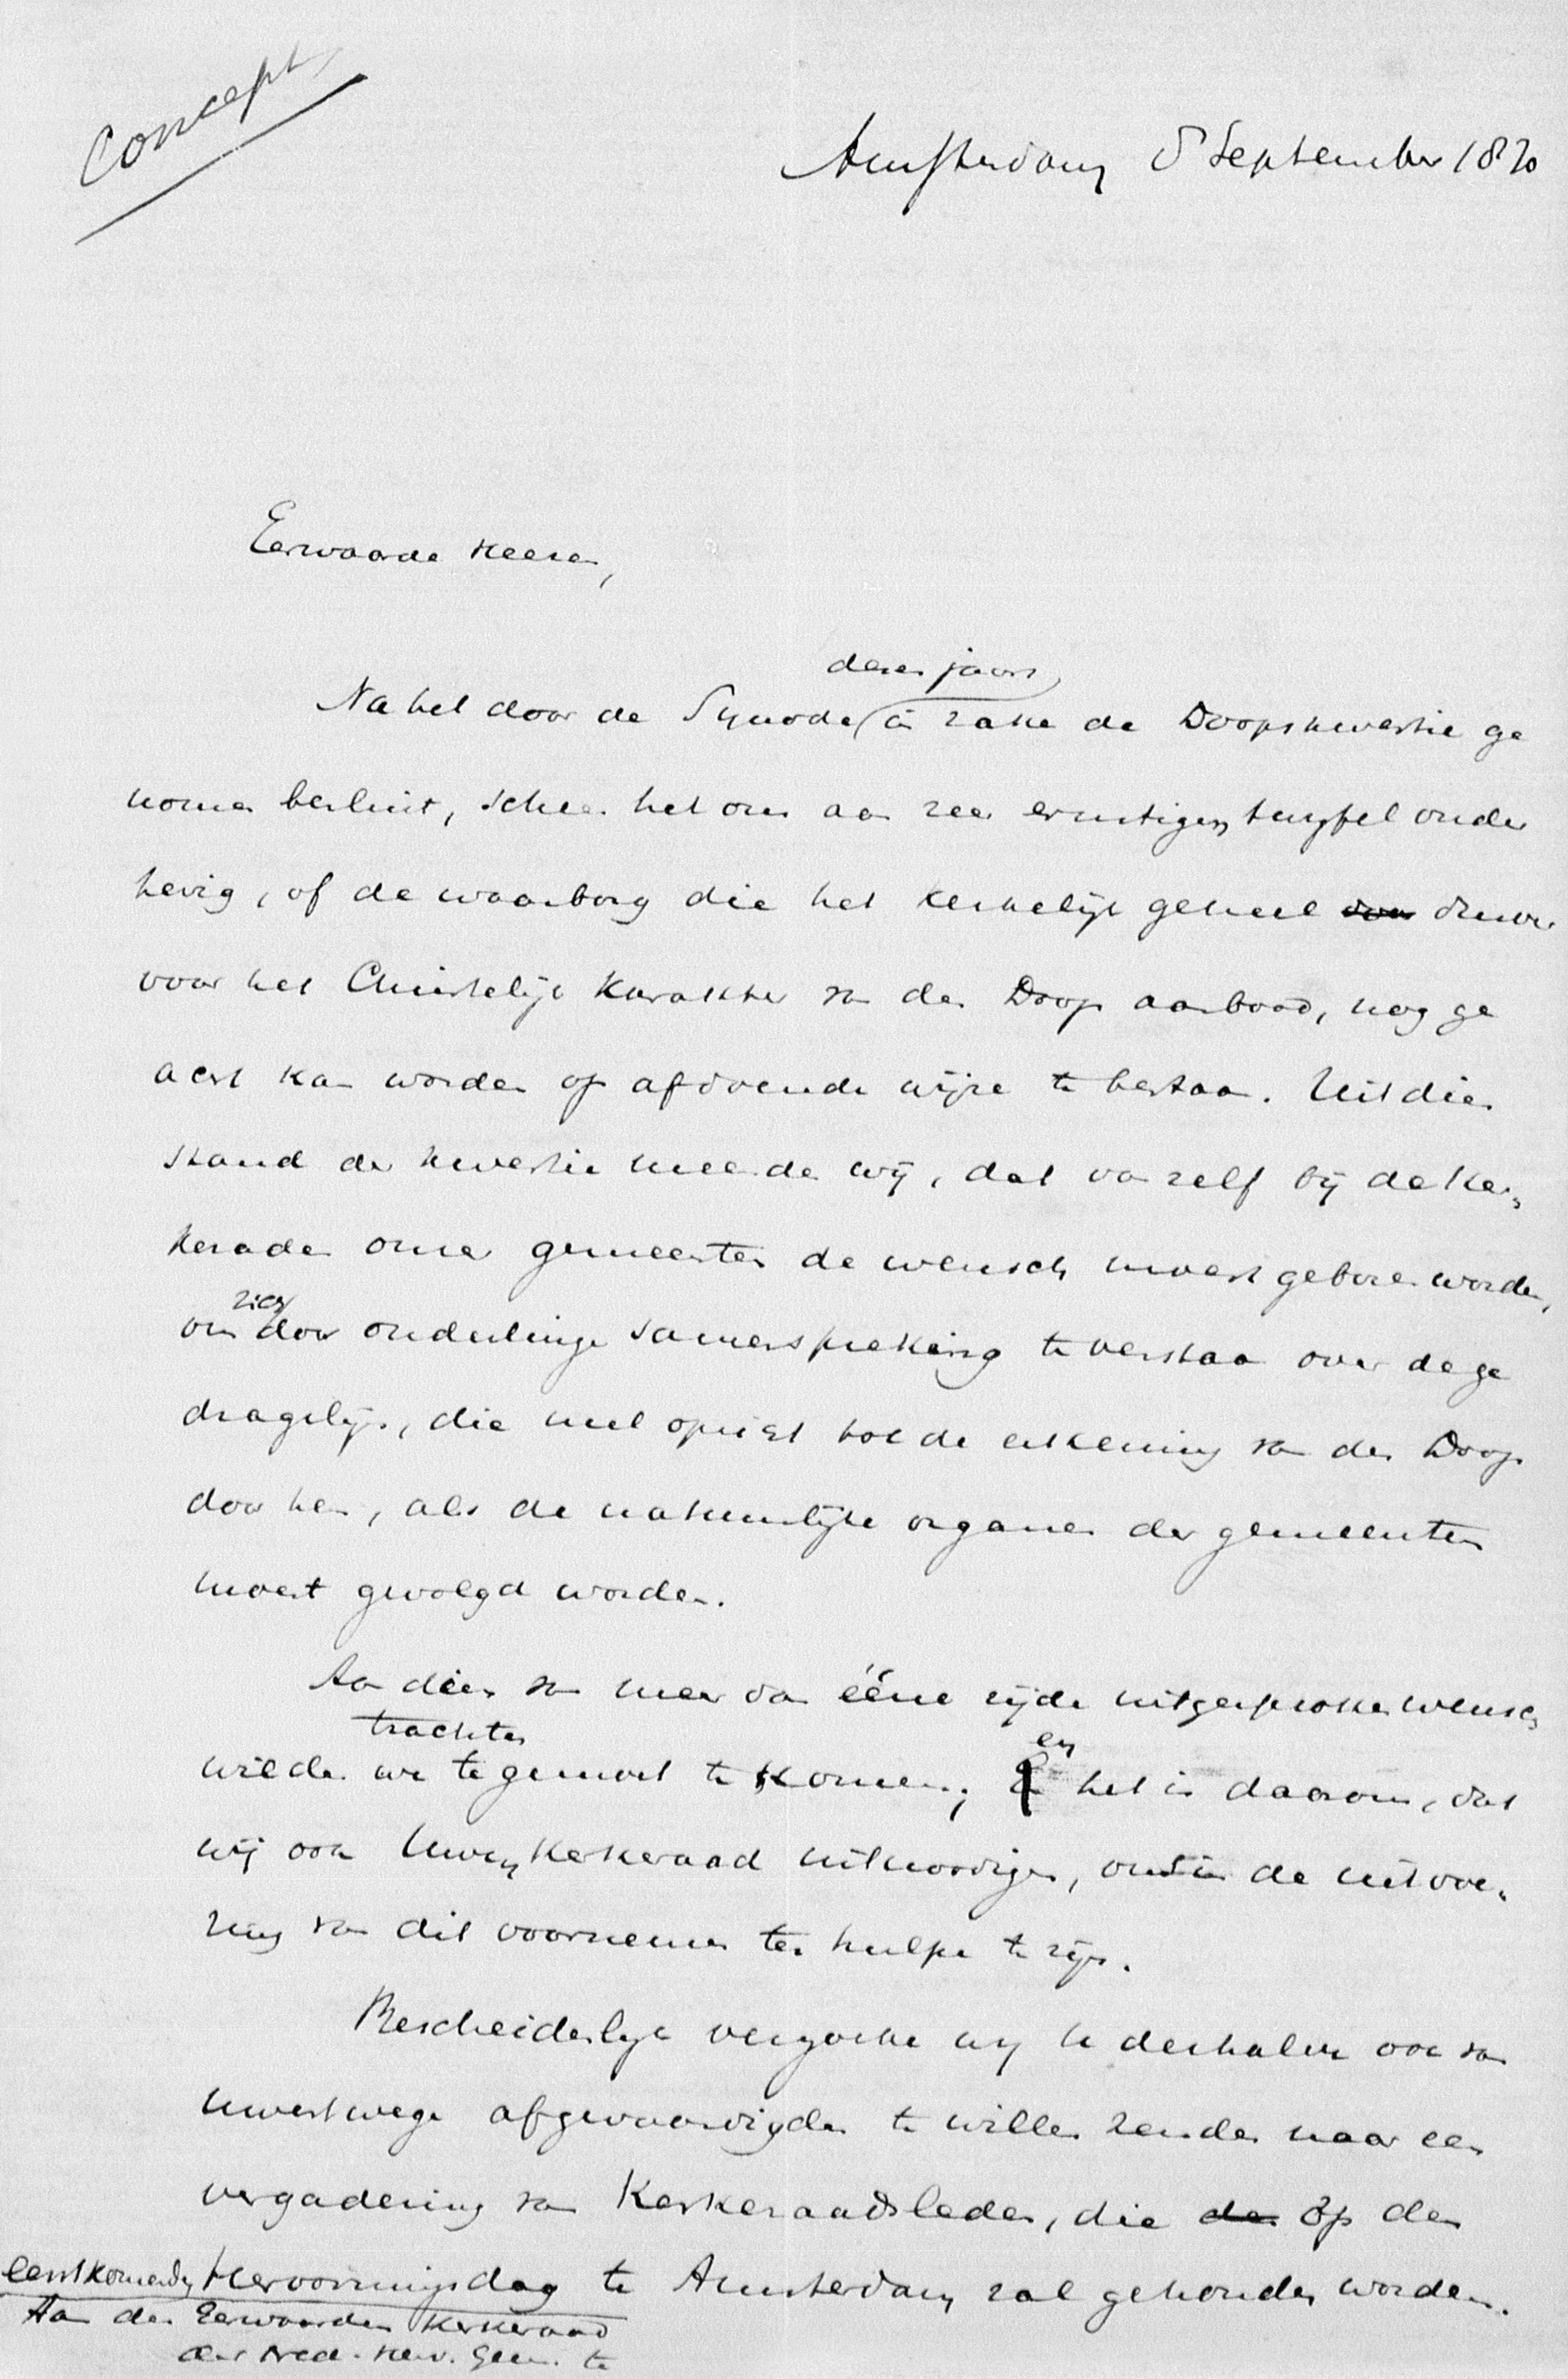 Concept
Amsterdam 5 September 1870
Eerwaarde Heeren,
dezes jaars
Na het door de Synode in zake de Doopskwestie ge
nomen besluit, scheen het ons aan zeer ernstigen twijfel onder
hevig, of de waarborg die het kerkelijk geheel dusver
voor het Christelijk karakter van den Doop aanbood, nog ge
acht kan worden op afdoende wijze te bestaan. Uit dien
stand der kwestie meenden wij, dat van zelf bij de Ker„
keraden onzer gemeenten de wensch moest geboren worden,
zich
om door onderlinge samenspreking te verstaan over de ge
dragslijn, die met opzicht tot de erkenning van den Doop
door hen, als de natuurlijke organen der gemeenten
moest gevolgd worden.
Aan dien van meer dan ééne zijde uitgesproken wensch
trachten
wilden we te gemoet te komen; en
het is daarom, dat
wij ook Uwen Kerkeraad uitnoodigen, om in de uitvoe„
ring van dit voornemen ter hulpe te zijn.
Bescheidenlijk verzoeken wij U derhalve ook van
Uwentwege afgevaardigden te willen zenden naar een
vergadering van Kerkeraadsleden, die den op den
eerstkomenden Hervormingsdag te Amsterdam zal gehouden worden.
Aan den Eerwaarden Kerkeraad
der Ned. Herv. Gem. te